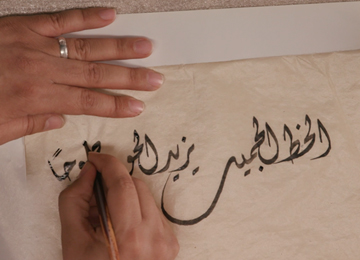 الخط الجميل يزيد الحق وضوحاً